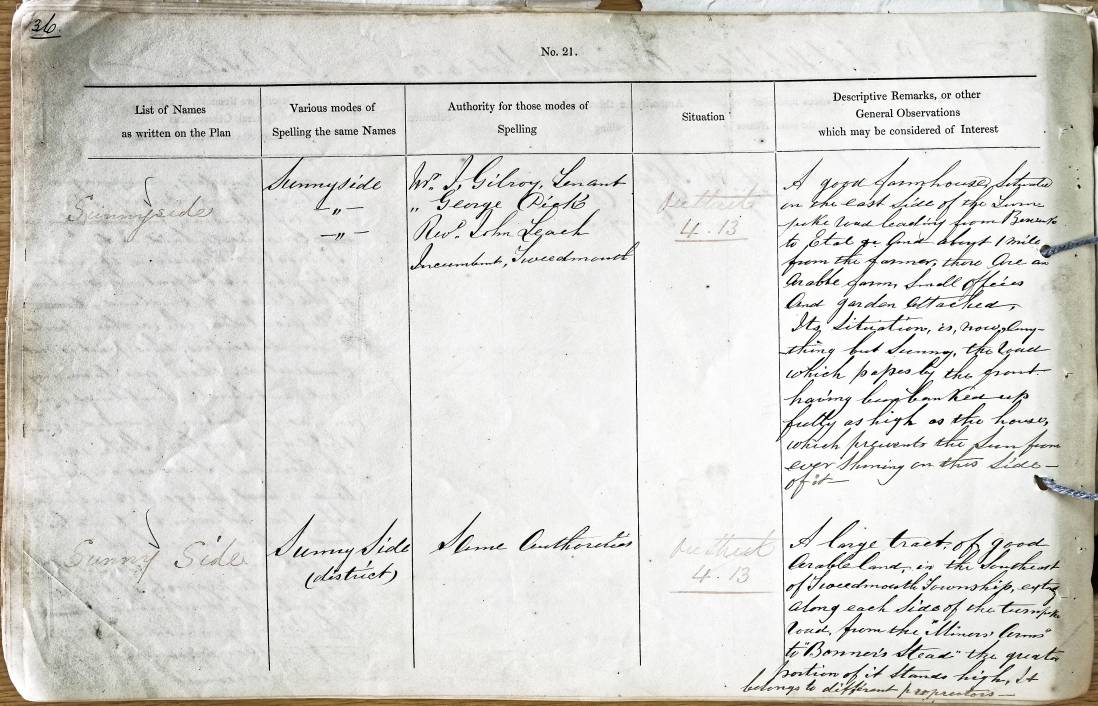 36.
No. 21.
List of Names
as written on the Plan
Various modes of
Spelling the same Names
Authority for those modes of
Spelling
Situation
Descriptive Remarks, or other
General Observations
which may be considered of Interest
Sunnyside
Sunnyside
—"—
—"—
Mr. J. Gilroy, Tenant
" George Dick
Revd. John Leach
Incumbent, Tweedmouth
4.13
A good farmhouse, Situate
on the east side of the Turn
pike road leading from Berwick
to Etal &c And about 1 mile
from the former, there are an
arable farm, Small offices
And garden attached,
Its Situation, is, now, any-
thing but Sunny, the road
which passes by the front
having been banked up
fully as high as the house,
which prevents the Sun from
ever Shining on this Side —
of it —
Sunny Side
Sunny Side
(district)
Same Authorities
4.13
A large tract, of good
Arable land, in the Southeast
of Tweedmouth Township,
along each Side of the turnpike
road, from the "Miners Arms"
to "Bonner's Stead" the greater
portion of it Stands high, It
belongs to different proprietors —